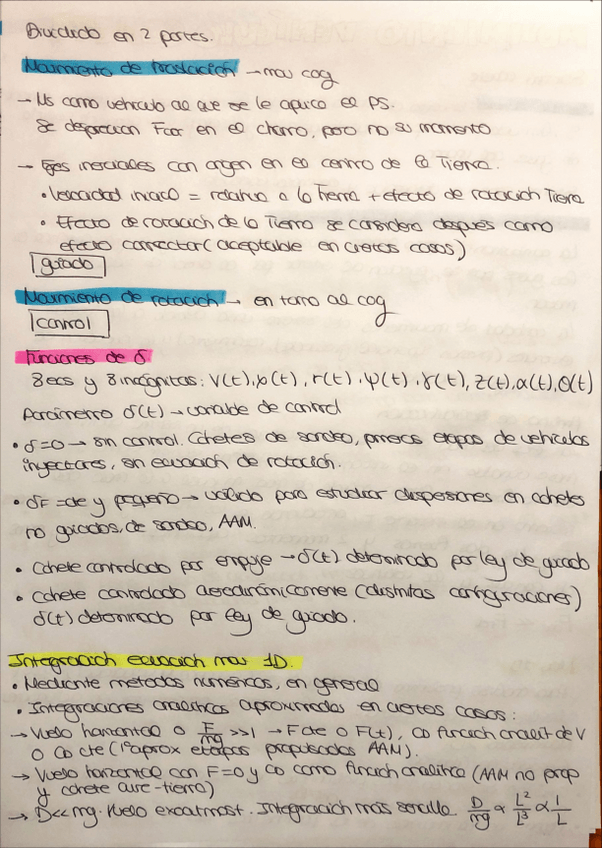 Dividido en 2 partes.
Movimiento de traslación → mov cdg
→ Us como vehículo al que se le aplica el PS.
Se desprecian Fcor en el chorro, pero no su momento
→ Ejes inerciales con origen en el centro de la Tierra.
• Velocidad inicial = relativa a la Tierra + efecto de rotación Tierra
• Efecto de rotación de la Tierra se considera después como
efecto corrector (aceptable en ciertos casos)
guiado
Movimiento de rotación → en torno al cdg
control
Funciones de δ
8 ecs y 8 incógnitas: V(t), (t), r(t), ψ(t), γ(t), z(t), α(t), θ(t)
Parámetro δ(t) → variable de control
• δ=0 → sin control. Cohetes de sondeo, primeras etapas de vehículos
inyectores, sin ecuación de rotación.
• δF = cte y pequeño → válido para estudiar dispersiones en cohetes
no guiados, de sondeo, AAM.
• Cohete controlado por empuje → δ(t) determinado por ley de guiado
• Cohete controlado aerodinámicamente (distintas configuraciones)
δ(t) determinado por ley de guiado.
Integración ecuación mov 1D.
• Mediante métodos numéricos, en general
• Integraciones analíticas aproximadas en ciertos casos:
→ Vuelo horizontal o F/mg >>1 → F cte o F(t), CD función analít de V
o CD cte (1ª aprox etapas propulsadas AAM).
→ Vuelo horizontal con F=0 y CD como función analítica (AAM no prop
y cohete aire-tierra)
→ D<<mg. Vuelo exoatmosf. Integración más sencilla. D/mg ∝ L²/L³ ∝ 1/L